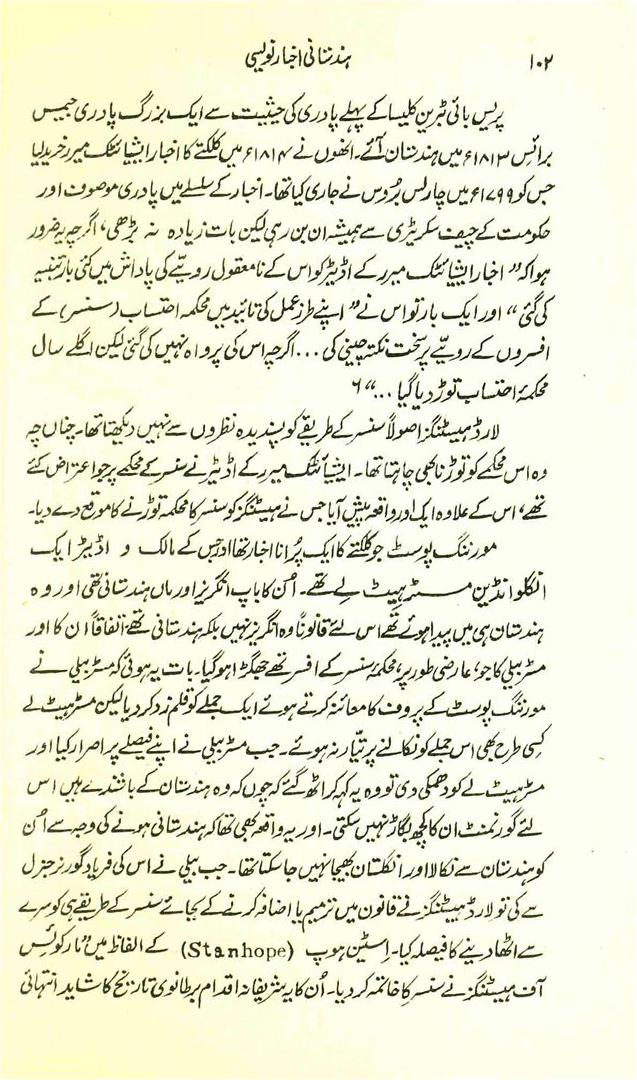 ۱۰۲ ہندستانی اخبار نویسی
پریس بائی ٹیرین کلیسا کے پہلے پادری کی حیثیت سے ایک بزرگ پادری جیمس
برائس ۱۸۱۳ء میں ہندستان آئے۔ انھوں نے ۱۸۱۴ء میں کلکتے کا اخبار ایشیاٹک میرر خرید لیا
جس کو ۱۷۹۹ء میں چارلس بروس نے جاری کیا تھا۔ اخبار کے سلسلے میں پادری موصوف اور
حکومت کے چیف سکریٹری سے ہمیشہ ان بن رہی لیکن بات زیادہ نہ بڑھی، اگرچہ یہ ضرور
ہوا کہ “اخبار ایشیاٹک میرر کے اڈیٹر کو اس کے نامعقول رویّے کی پاداش میں کئی بار تنبیہ
کی گئی” اور ایک بار تو اس نے “اپنے طرز عمل کی تائید میں محکمہ احتساب (سنسر) کے
افسروں کے رویّے پر سخت نکتہ چینی کی ... اگرچہ اس کی پرواہ نہیں کی گئی لیکن اگلے سال
محکمۂ احتساب توڑ دیا گیا ...” ۶
لارڈ ہیسٹنگز اصولاً سنسر کے طریقے کو پسندیدہ نظروں سے نہیں دیکھتا تھا۔ چناں چہ
وہ اس محکمے کو توڑنا بھی چاہتا تھا۔ ایشیاٹک میرر کے اڈیٹر نے سنسر کے محکمے پر جو اعتراض کئے
تھے، اس کے علاوہ ایک اور واقعہ پیش آیا جس نے ہیسٹنگز کو سنسر کا محکمہ توڑنے کا موقع دے دیا۔
مورننگ پوسٹ جو کلکتے کا ایک پُرانا اخبار تھا اور جس کے مالک و اڈیٹر ایک
انگلو انڈین مسٹر ہیٹ لے تھے۔ اُن کا باپ انگریز اور ماں ہندستانی تھی اور وہ
ہندستان ہی میں پیدا ہوئے تھے اس لئے قانوناً وہ انگریز نہیں بلکہ ہندستانی تھے، اتفاقاً ان کا اور
مسٹر بیلی کا جو، عارضی طور پر، محکمۂ سنسر کے افسر تھے جھگڑا ہوگیا۔ بات یہ ہوئی کہ مسٹر بیلی نے
مورننگ پوسٹ کے پروف کا معائنہ کرتے ہوئے ایک جملے کو قلم زد کر دیا لیکن مسٹر ہیٹ لے
کسی طرح بھی اس جملے کو نکالنے پر تیّار نہ ہوئے۔ جب مسٹر بیلی نے اپنے فیصلے پر اصرار کیا اور
مسٹر ہیٹ لے کو دھمکی دی تو وہ یہ کہہ کر اٹھ گئے کہ چوں کہ وہ ہندستان کے باشندے ہیں اس
لئے گورنمنٹ ان کا کچھ بگاڑ نہیں سکتی۔ اور یہ واقعہ بھی تھا کہ ہندستانی ہونے کی وجہ سے اُن
کو ہندستان سے نکالا اور انگلستان بھیجا نہیں جا سکتا تھا۔ جب بیلی نے اس کی فریاد گورنر جنرل
سے کی تو لارڈ ہیسٹنگز نے قانون میں ترمیم یا اضافہ کرنے کے بجائے سنسر کے طریقے ہی کو سرے
سے اٹھا دینے کا فیصلہ کیا۔ اسٹین ہوپ (Stanhope) کے الفاظ میں “مارکوئس
آف ہیسٹنگز نے سنسر کا خاتمہ کر دیا۔ اُن کا یہ شریفانہ اقدام برطانوی تاریخ کا شاید انتہائی